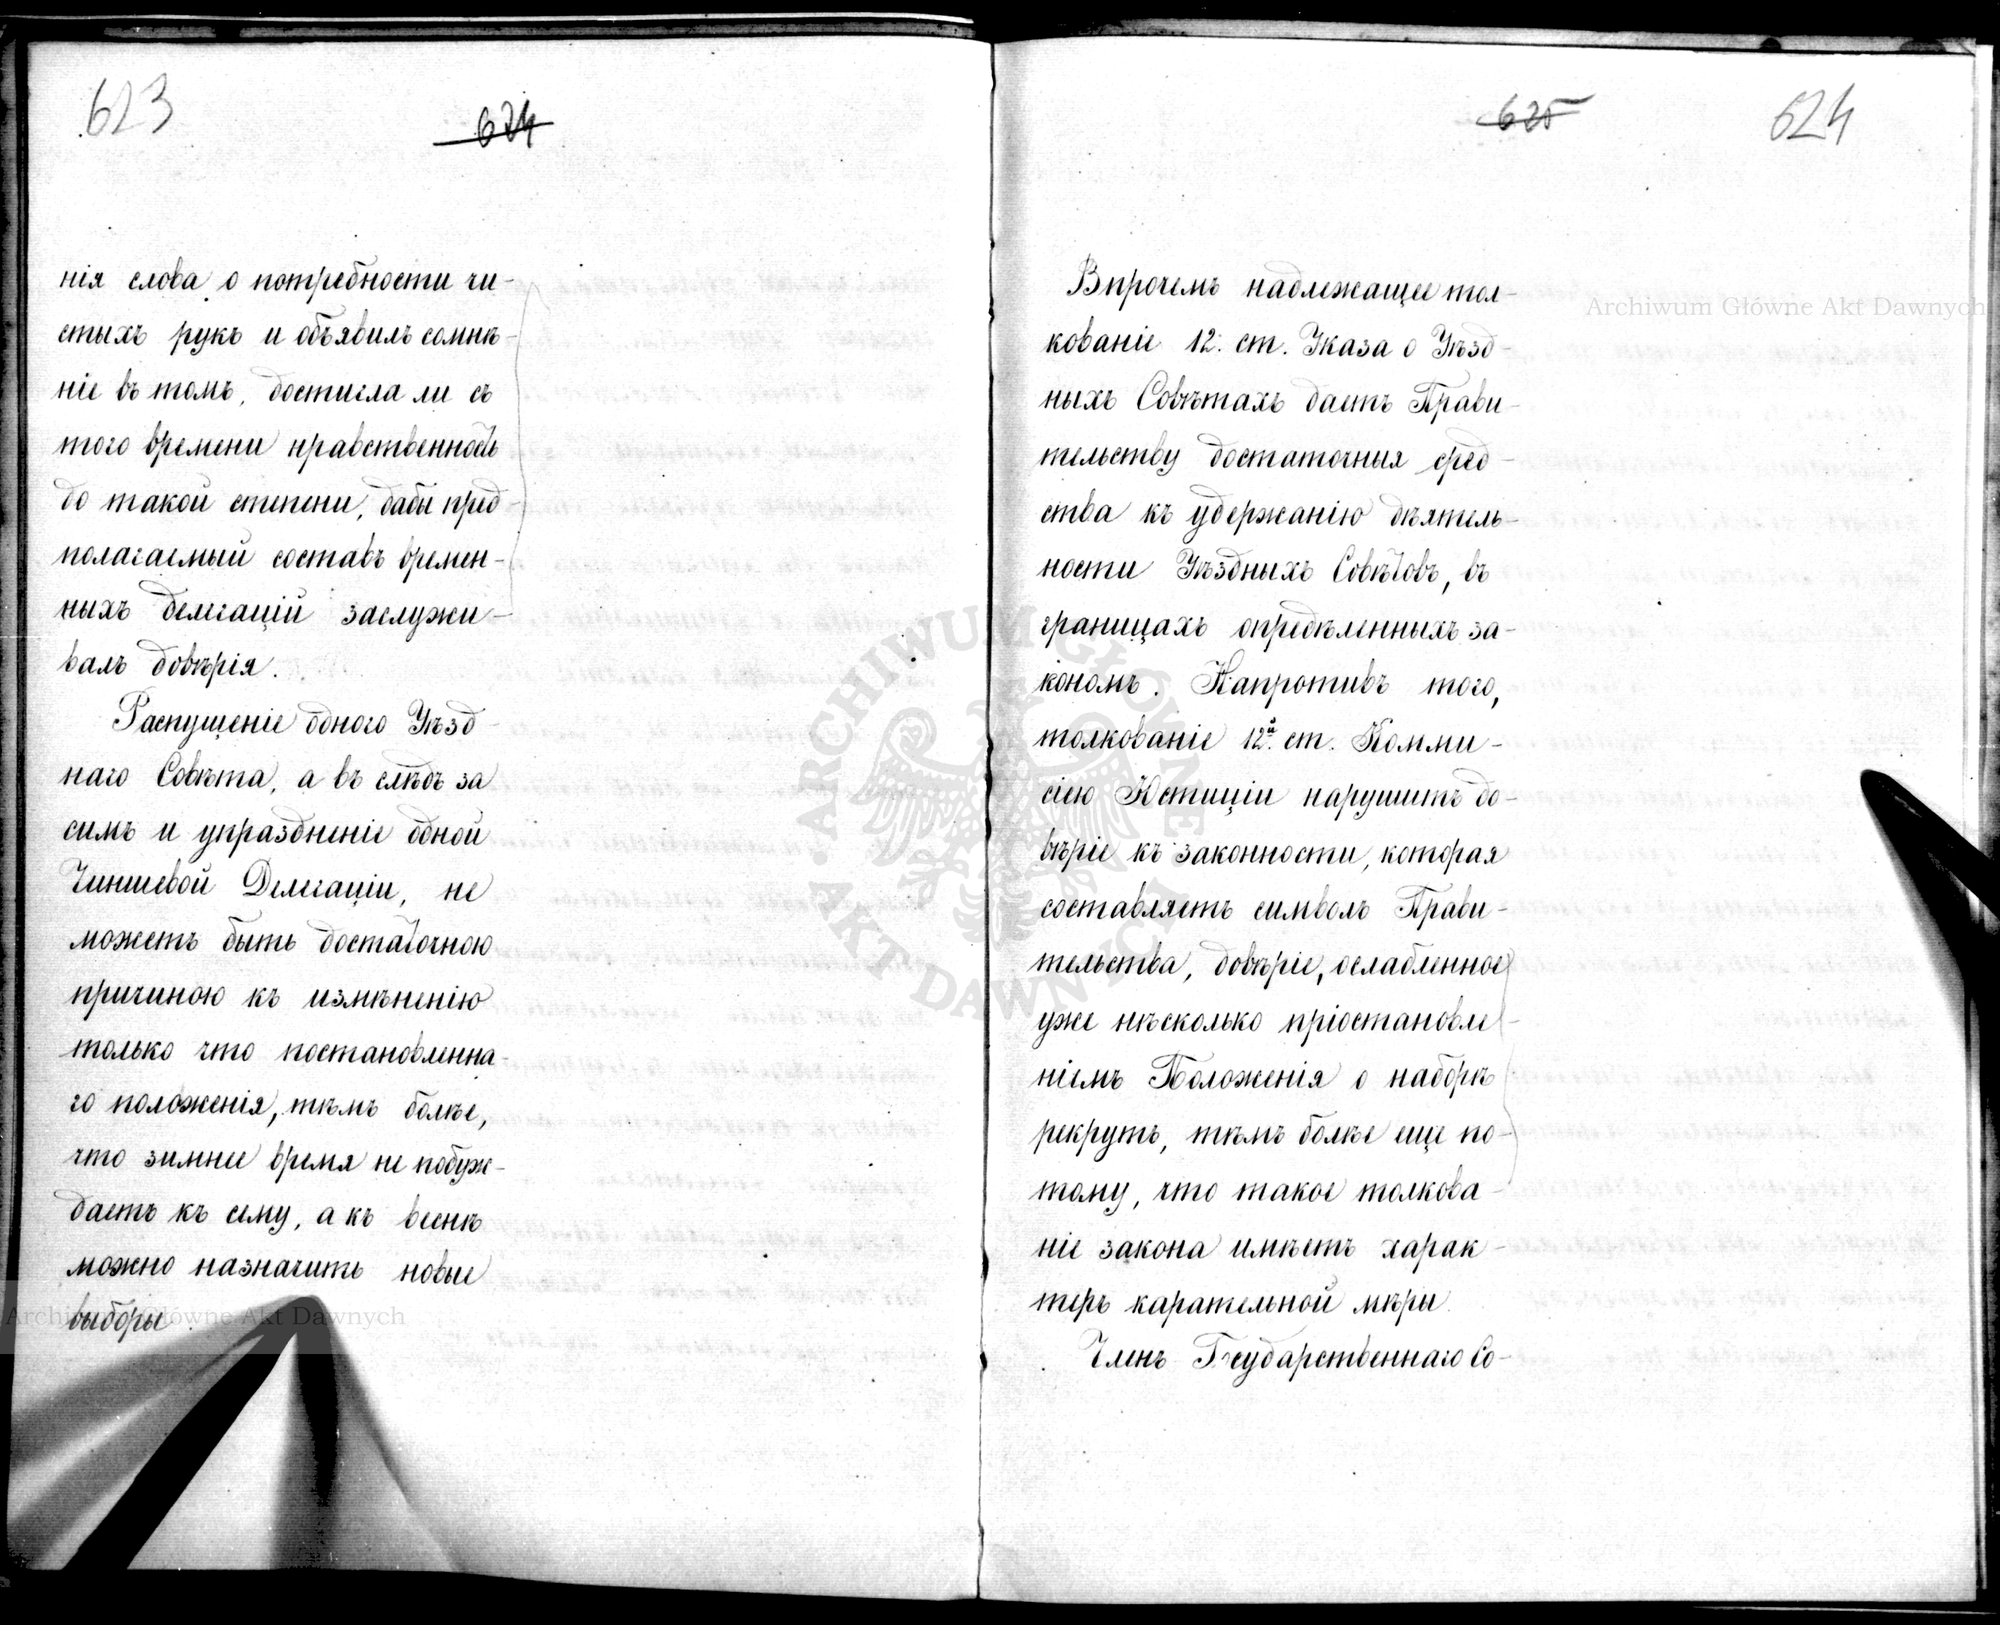 623
624
нія слова о потребности чи-
стыхъ рукъ и объявилъ сомнѣ-
ніе въ томъ, достигла ли съ
того времени нравственность
до такой степени, дабы пред-
полагаемый составъ времен-
ныхъ делегацій заслужи-
валъ довѣрія.
Распущеніе одного Уѣзд-
наго Совѣта, а въ слѣдъ за
симъ и упраздненіе одной
Чиншевой Делегаціи, не
можетъ быть достаточною
причиною къ измѣненію
только что постановленна-
го положенія, тѣмъ болѣе,
что зимнее время не побуж-
даетъ къ сему, а къ веснѣ
можно назначить новые
выборы.
625
624
Впрочемъ надлежащее тол-
кованіе 12. ст. Указа о Уѣзд-
ныхъ Совѣтахъ даетъ Прави-
тельству достаточныя сред-
ства къ удержанію дѣятель-
ности Уѣздныхъ Совѣтовъ, въ
границахъ опредѣленныхъ за-
кономъ. Напротивъ того,
толкованіе 12й. ст. Комми-
сіею Юстиціи нарушитъ до-
вѣріе къ законности, которая
составляетъ символъ Прави-
тельства, довѣріе, ослабленное
уже нѣсколько пріостановле-
ніемъ Положенія о наборѣ
рекрутъ, тѣмъ болѣе еще по-
тому, что такое толкова-
ніе закона имѣетъ харак-
теръ карательной мѣры.
Членъ Государственнаго Со-
Archiwum Główne Akt Dawnych
Archiwum Główne Akt Dawnych
ARCHIWUM GŁÓWNE AKT DAWNYCH